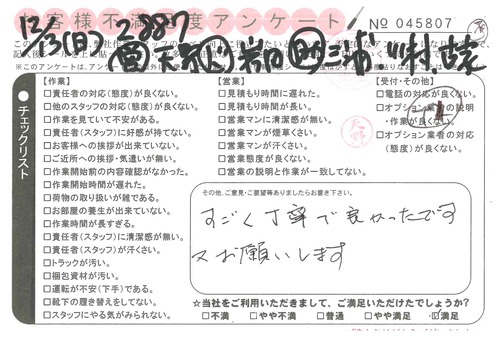 お客様不満足度アンケート
No 045807
12/13(日) 2887
【作業】
□責任者の対応(態度)が良くない。
□他のスタッフの対応(態度)が良くない。
□作業を見ていて不安がある。
□責任者(スタッフ)に好感が持てない。
□お客様への挨拶が出来ていない。
□ご近所への挨拶・気遣いが無い。
□作業開始前の内容確認がなかった。
□作業開始時間が遅れた。
□荷物の取り扱いが雑である。
□お部屋の養生が出来ていない。
□作業時間が長すぎる。
□責任者(スタッフ)に清潔感が無い。
□責任者(スタッフ)が汗くさい。
□トラックが汚い。
□梱包資材が汚い。
□運転が不安(下手)である。
□靴下の履き替えをしてない。
□スタッフにやる気がみられない。
【営業】
□見積もりに遅れた。
□見積もり時間が長い。
□営業マンに清潔感が無い。
□営業マンが煙草くさい。
□営業マンが汗くさい。
□営業態度が良くない。
□営業の説明と作業が一致してない。
【受付・その他】
□電話の対応が良くない。
□オプション業者の説明
・作業が良くない。
□オプション業者の対応
(態度)が良くない。
チェックリスト
その他、ご意見・ご要望等ありましたらお書き下さい。
すごく丁寧で良かったです
又お願いします
☆当社をご利用いただきまして、ご満足いただけたでしょうか?
□不満 □やや不満 □普通 □やや満足 ☑満足